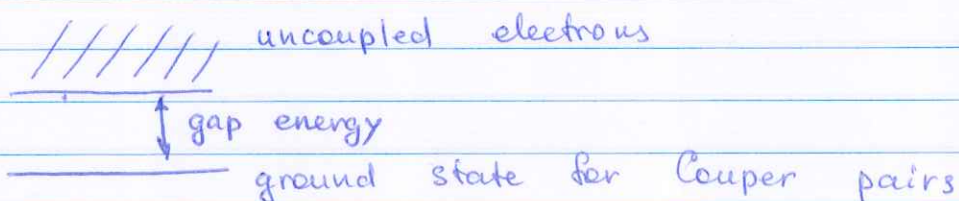 uncoupled electrons
gap energy
ground state for Couper pairs